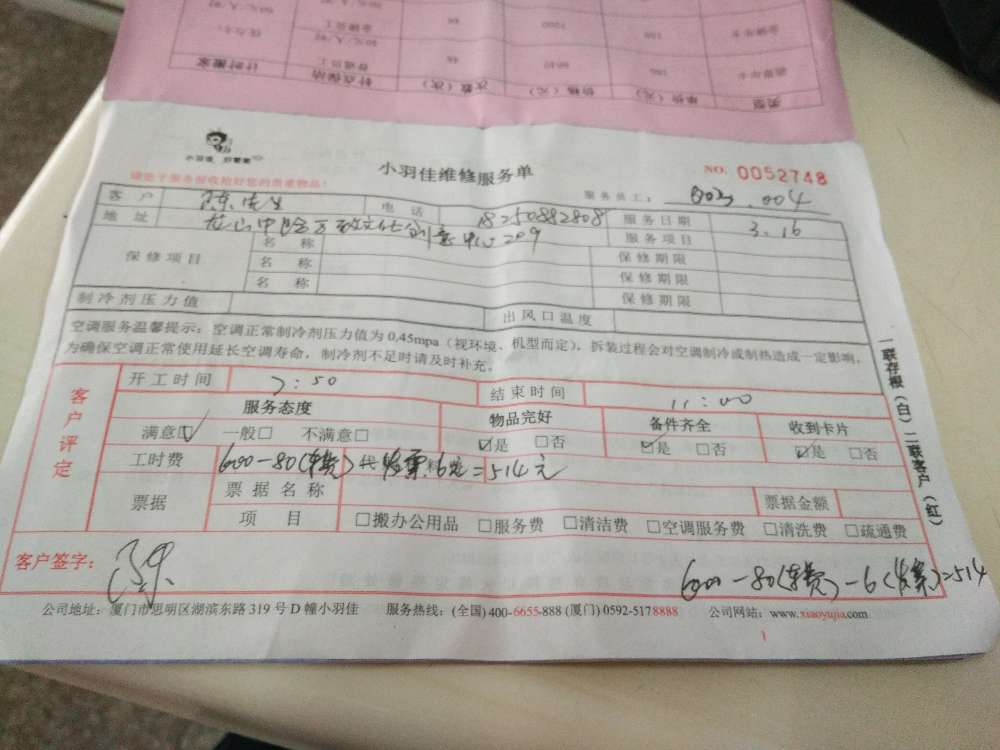 计时搬家 针点保洁 次数（次） 价格（元） 单价（元） 类型
小羽佳 好管家
小羽佳维修服务单
NO. 0052748
请处于服务前收拾好您的贵重物品！
服务员工： 003 . 004
客 户 陈先生 电 话 18250882808 服务日期 3.16
地 址 龙山中路万致文化创意中心209 服务项目
保修项目 名 称 保修期限
名 称 保修期限
名 称 保修期限
制冷剂压力值 出风口温度
空调服务温馨提示：空调正常制冷剂压力值为 0.45mpa（视环境、机型而定），拆装过程会对空调制冷或制热造成一定影响，
为确保空调正常使用延长空调寿命，制冷剂不足时请及时补充。
客户评定
开工时间 7:50 结束时间 11:00
服务态度 物品完好 备件齐全 收到卡片
满意☑ 一般□ 不满意□ ☑是 □否 ☑是 □否 ☑是 □否
工时费 600-80(车费) 代发票 6元=514元
票据 票据名称 票据金额
项 目 □搬办公用品 □服务费 □清洁费 □空调服务费 □清洗费 □疏通费
客户签字： 陈
600-80(车费)-6(发票)=514
公司地址：厦门市思明区湖滨东路 319 号 D 幢小羽佳 服务热线：(全国) 400-6655-888 (厦门) 0592-5178888 公司网站：www.xiaoyujia.com
一联存根（白）二联客户（红）